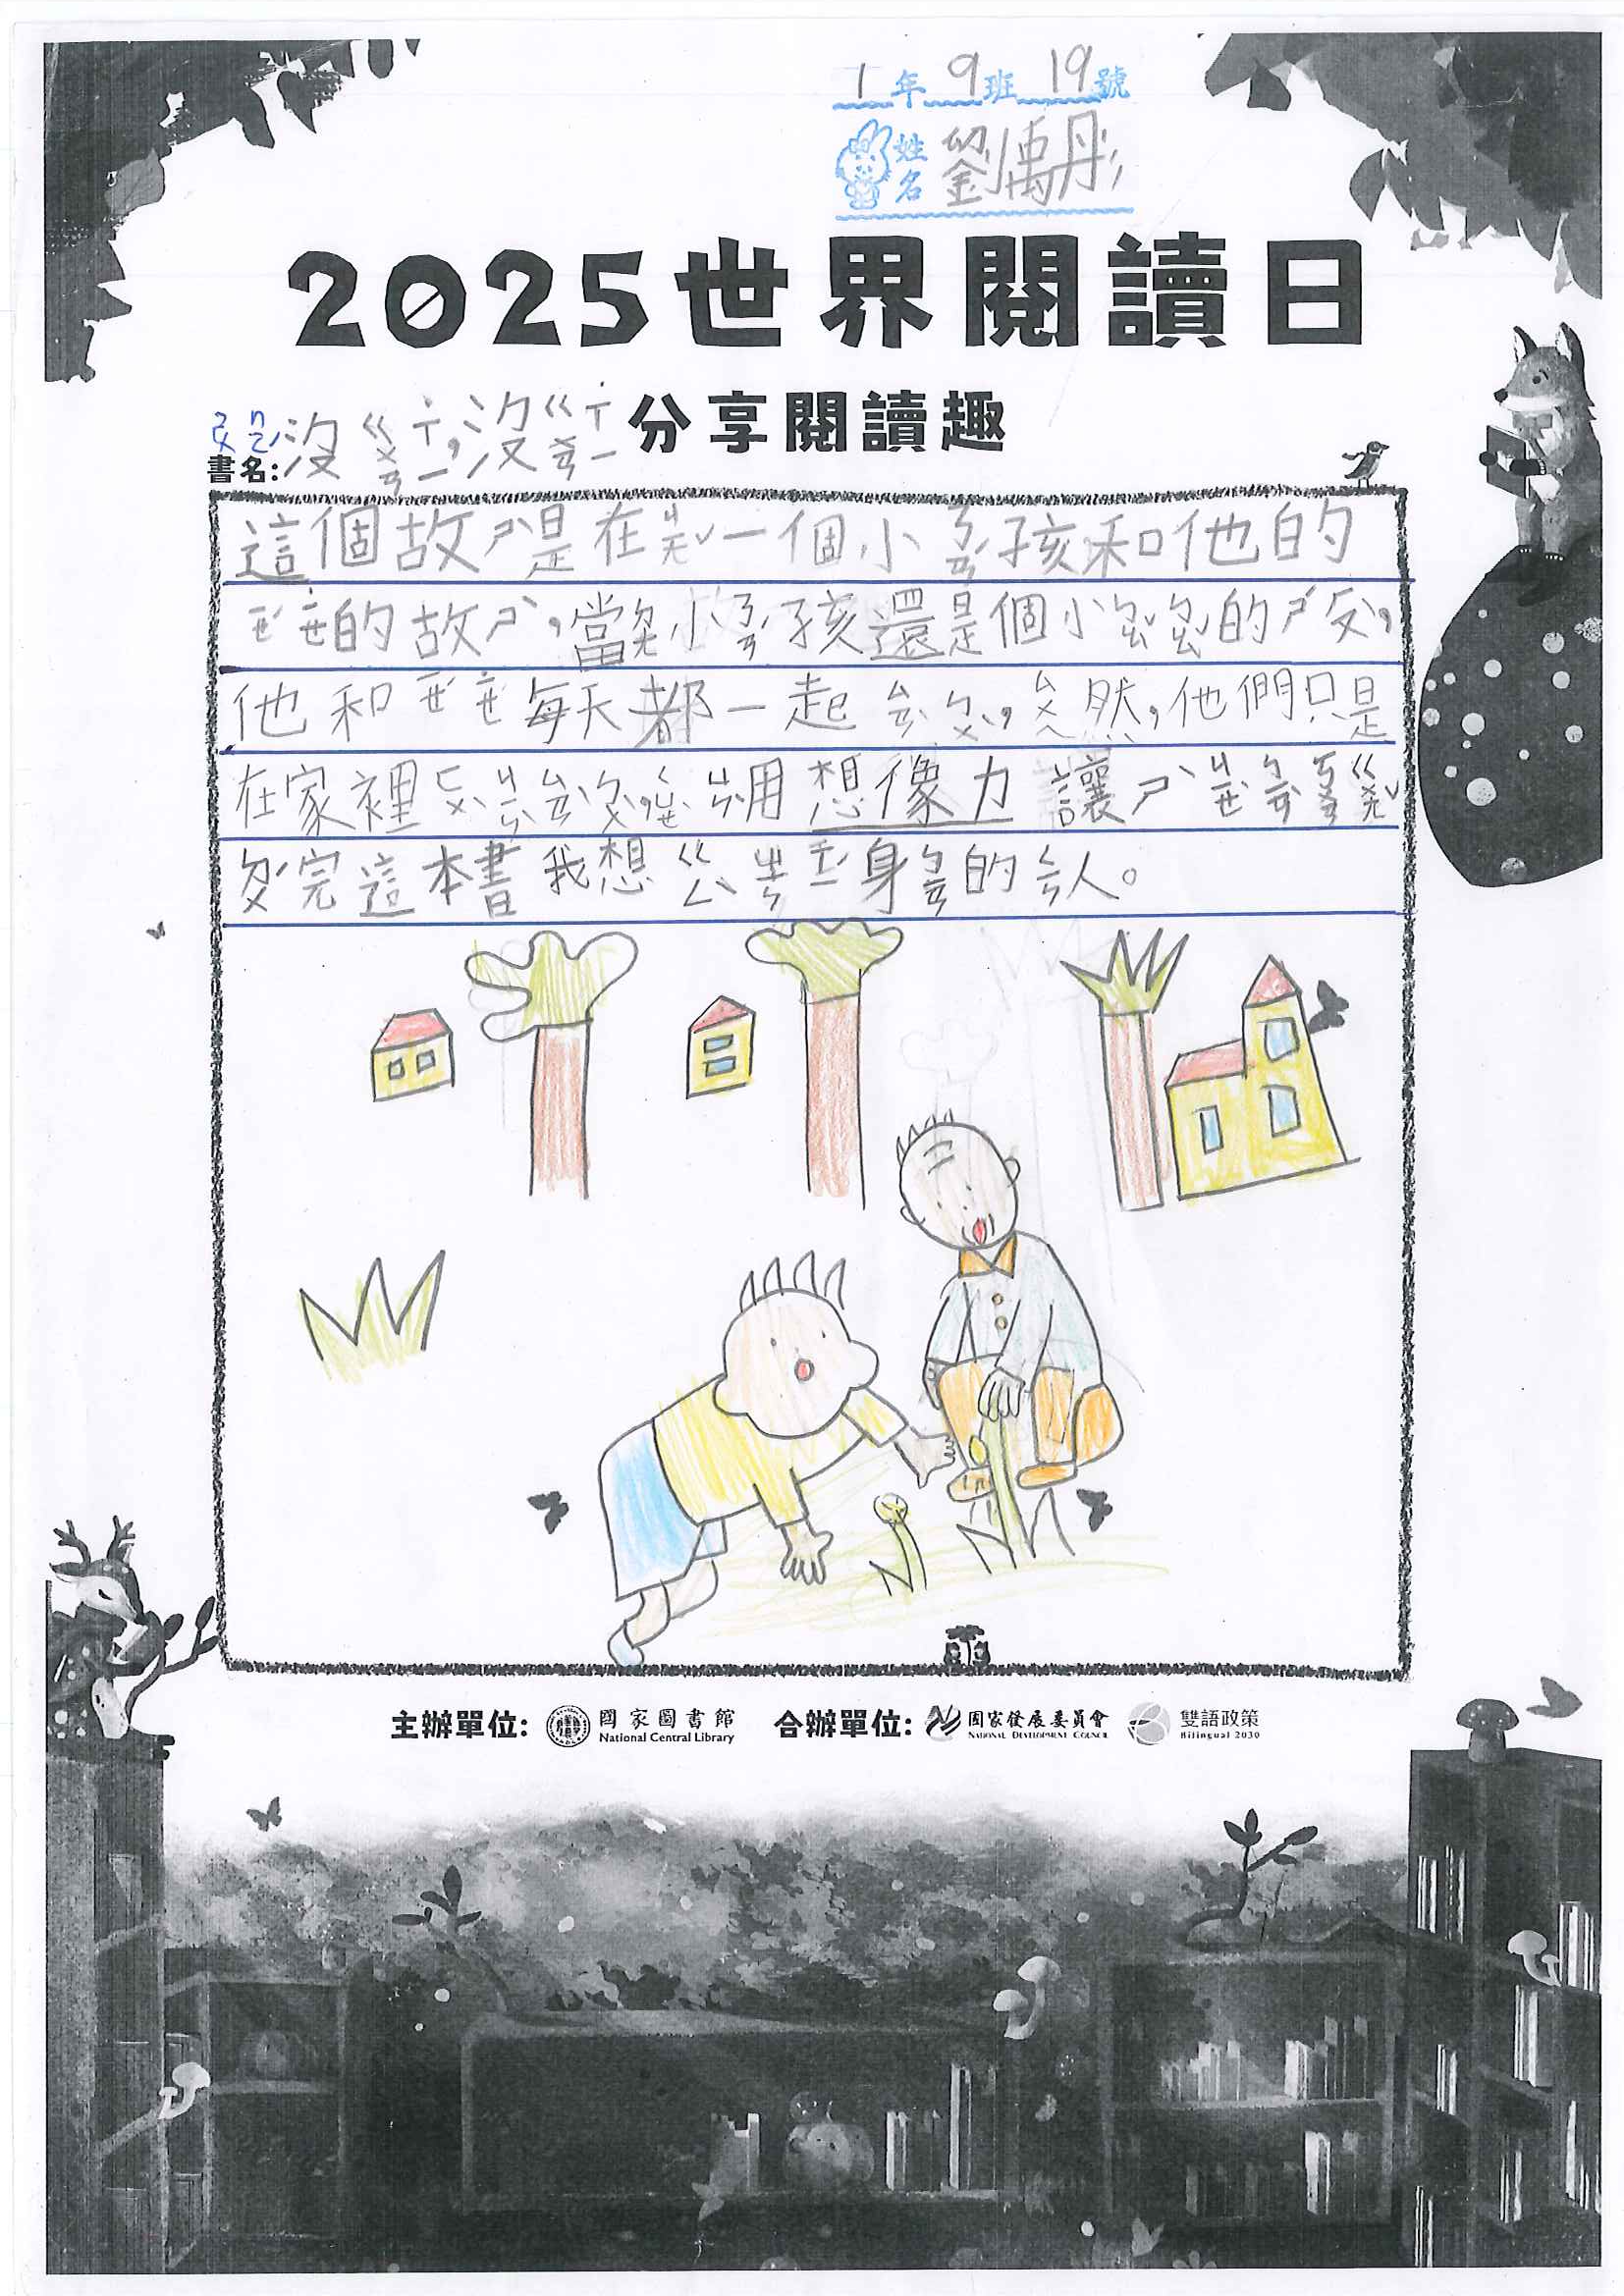 1年9班19號
姓名 劉
2025世界閱讀日
分享閱讀趣
書名:沒ㄍㄨㄢ ㄒㄧ,沒ㄍㄨㄢ ㄒㄧ
這個故ㄕˋ是在ㄐㄧㄤˇ一個小ㄋㄢˊ孩和他的
ㄧㄝˊㄧㄝ˙的故ㄕˋ,當 小ㄋㄢˊ孩還是個小 的ㄕˊ ,
他和ㄧㄝˊㄧㄝ˙每天都一起ㄙㄢˋㄅㄨˋ,ㄙㄨㄟ然,他們只是
在家裡ㄈㄨˋㄐㄧㄣˋㄙㄢˋㄅㄨˋ, 用想像力讓ㄕˋㄐㄧㄝˋㄅㄧㄢˋㄎㄨㄢ
完這本書我想ㄍㄣ 身ㄅㄧㄢ的 人。
主辦單位: 國家圖書館
National Central Library
合辦單位: 國家發展委員會
NATIONAL DEVELOPMENT COUNCIL
雙語政策
Bilingual 2030